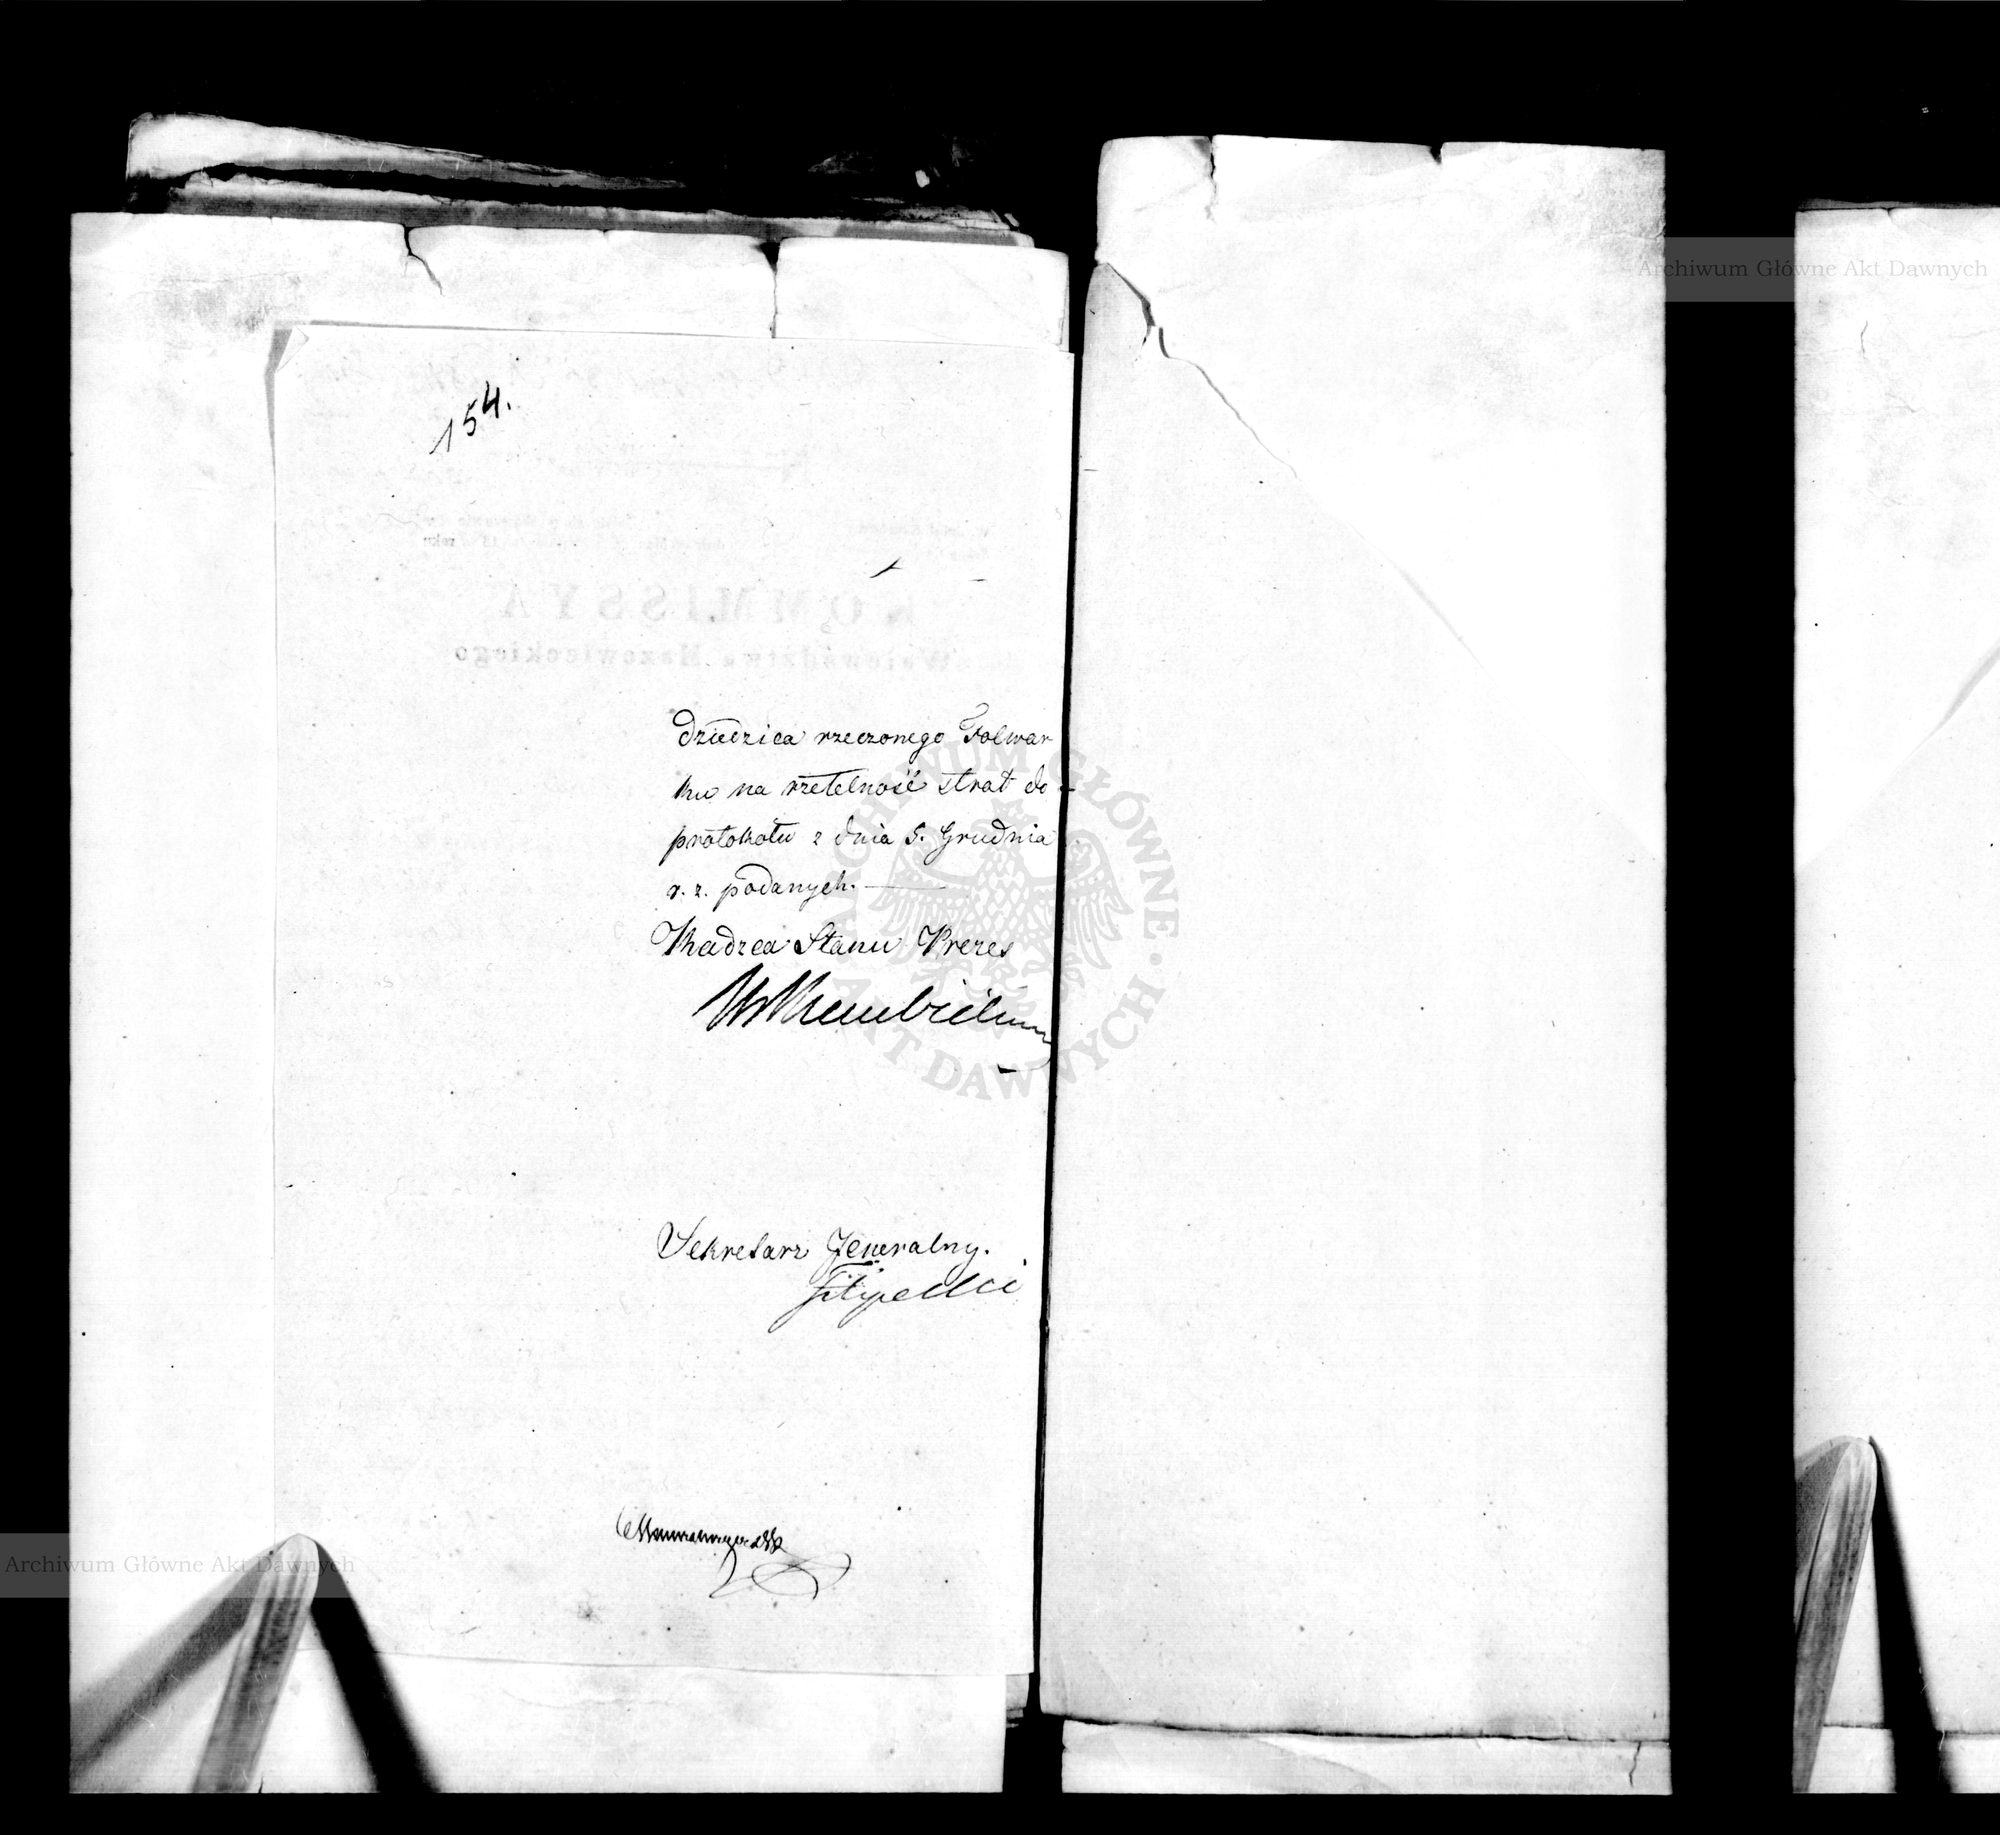 154.
dziedzica rzeczonego Folwar
ku na rzetelność strat do
protokołu z dnia 5. Grudnia
r. z. podanych.
Radzca Stanu Prezes
Sekretarz Jeneralny.
Filipecki
Archiwum Główne Akt Dawnych
ARCHIWUM GŁÓWNE AKT DAWNYCH
Archiwum Główne Akt Dawnych
KOMMISSYA
Województwa Mazowieckiego